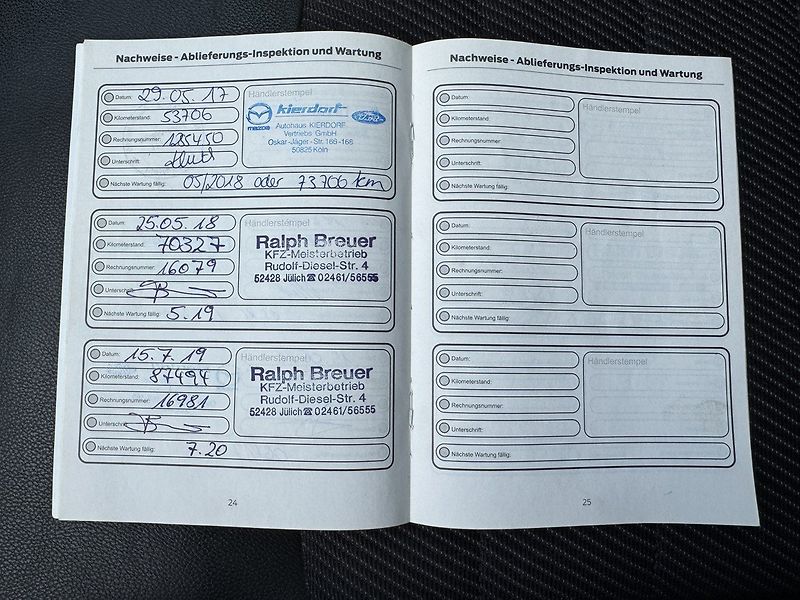 Nachweise - Ablieferungs-Inspektion und Wartung
Datum: 29.05.17
Kilometerstand: 53706
Rechnungsnummer: 185450
Unterschrift:
Nächste Wartung fällig: 05/2018 oder 73706 km
Händlerstempel
mazda Kierdorf Ford
Autohaus KIERDORF
Vertriebs GmbH
Oskar-Jäger-Str. 166-168
50825 Köln
Datum: 25.05.18
Kilometerstand: 70327
Rechnungsnummer: 16079
Unterschrift:
Nächste Wartung fällig: 5.19
Händlerstempel
Ralph Breuer
KFZ-Meisterbetrieb
Rudolf-Diesel-Str. 4
52428 Jülich ☎ 02461/56555
Datum: 15.7.19
Kilometerstand: 87494
Rechnungsnummer: 16981
Unterschrift:
Nächste Wartung fällig: 7.20
Händlerstempel
Ralph Breuer
KFZ-Meisterbetrieb
Rudolf-Diesel-Str. 4
52428 Jülich ☎ 02461/56555
24
Nachweise - Ablieferungs-Inspektion und Wartung
Datum:
Kilometerstand:
Rechnungsnummer:
Unterschrift:
Nächste Wartung fällig:
Händlerstempel
Datum:
Kilometerstand:
Rechnungsnummer:
Unterschrift:
Nächste Wartung fällig:
Händlerstempel
Datum:
Kilometerstand:
Rechnungsnummer:
Unterschrift:
Nächste Wartung fällig:
Händlerstempel
25